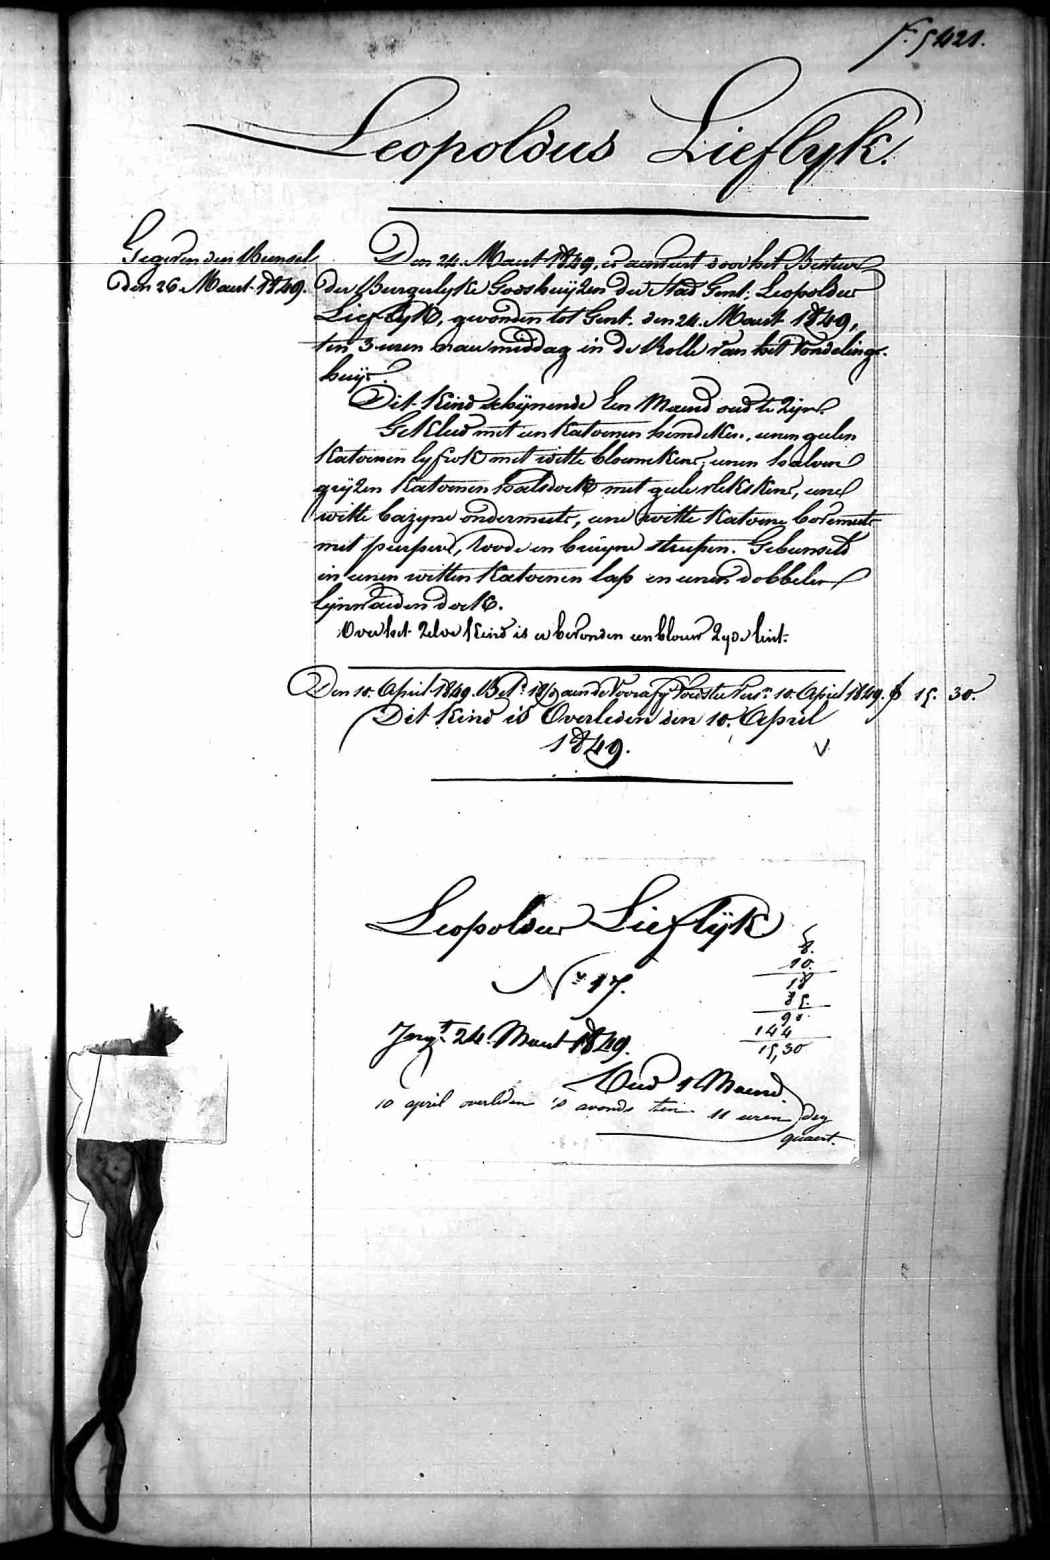 F. 5421.
Leopoldus Lieflyk.
Gegeven den Bunsel
den 26 Maert 1849.
Den 24. Maert 1849, is aenveert door het Bestuer
der Burgerlyke Godshuijzen der Stad Gent; Leopoldus
Lieflyk, gevonden tot Gent, den 24. Maert 1849,
ten 3 uren naer middag in de Rolle van het Vondelings-
huijs.
Dit kind schijnende Een Maend oud te zijn.
Gekleed met een katoenen hemdeken, eenen gulen
katoenen lyfrok met witte bloemkens, eenen halven
grijzen katoenen halsdoek met gele vlekskens, eene
witte bazyne ondermuts, eene witte katoene bovemuts
met purpere, roode en bruyne streepen. Gebunseld
in eenen witten katoenen lap en eenen dobbelen
lijnwaeden doek.
Over het zelve kind is er bevonden een blauw zyde lint.
Den 10. April 1849. Bet. aen de Voedster 10. April 1849. f 15. 30.
Dit kind is Overleden den 10. April
1849. V
Leopoldus Lieflijk
N. 17.
Ing. 24. Maert 1849.
Oud 1 Maend.
10 april overleden 's avonds ten 11 uren dry
quaert.
8.
10.
18
144
15,30